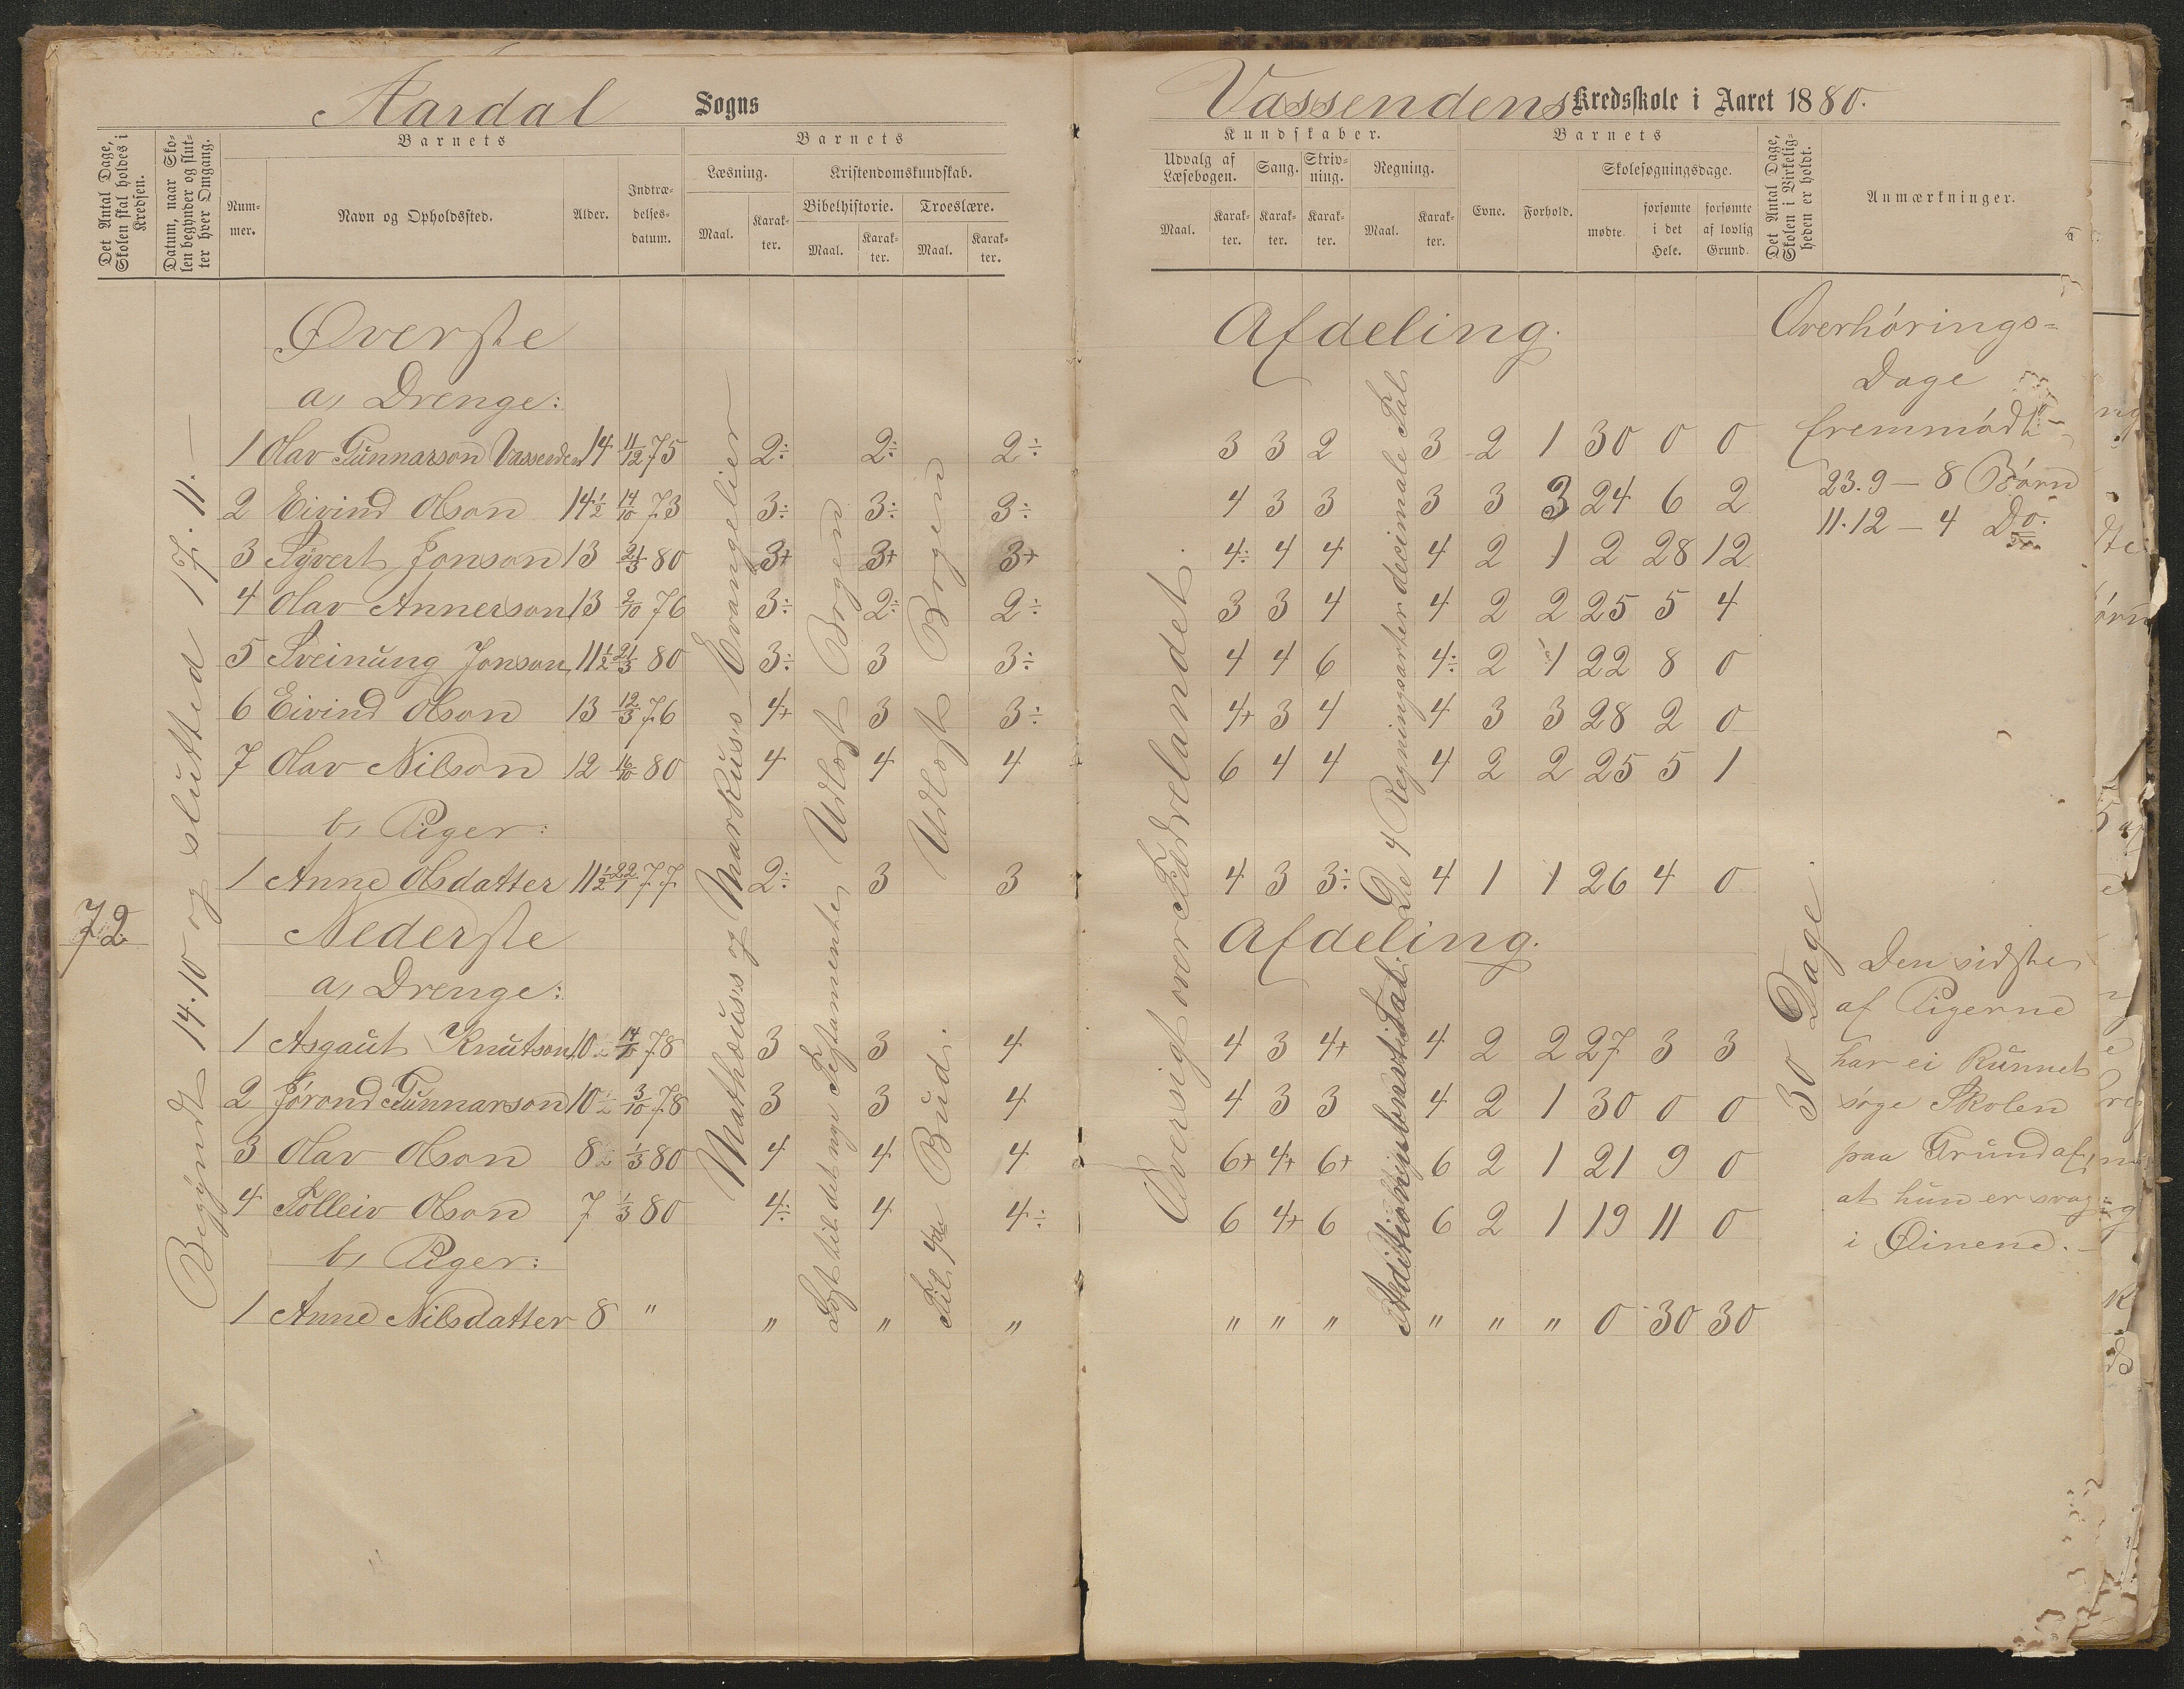 Aardal Sogns
Det Antal Dage, Skolen skal holdes i Kredsen.
Datum, naar Skolen begynder og slutter hver Omgang.
Barnets
Nummer.
Navn og Opholdssted.
Alder.
Indtrædelsesdatum.
Barnets
Læsning.
Kristendomskundskab.
Bibelhistorie.
Troeslære.
Maal.
Karakter.
Maal.
Karakter.
Maal.
Karakter.
72
Begyndt 14.10 og slutted 17.11.—
Øverste
a, Drenge:
1 Olav Gunnarson Vassenden 14 11/12 75 2÷ 2÷ 2÷
2 Eivind Olson 14½ 14/10 73 3÷ 3÷ 3÷
3 Syvert Jonson 13 21/3 80 3+ 3+ 3+
4 Olav Annerson 13 2/10 76 3÷ 2÷ 2÷
5 Sveinung Jonson 11½ 21/3 80 3÷ 3 3÷
6 Eivind Olson 13 12/3 76 4+ 3 3÷
7 Olav Nilson 12 16/10 80 4 4 4
b, Piger:
1 Anne Olsdatter 11½ 22/1 77 2÷ 3 3
Nederste
a, Drenge:
1 Asgaut Knutson 10½ 14/10 78 3 3 4
2 Jörond Gunnarson 10½ 3/10 78 3 3 4
3 Olav Olson 8½ 1/3 80 4 4 4
4 Tolleiv Olson 7 1/3 80 4÷ 4 4÷
b, Piger:
1 Anne Nilsdatter 8 " " " "
Mathæus's og Markus's Evangelier
Udlæst Bogen
Læst til det nye Testamente
Udlæst Bogen
Til 4de Bud.
Vassendens Kredsskole i Aaret 1880.
Kundskaber.
Udvalg af Læsebogen.
Sang.
Skrivning.
Regning.
Maal.
Karakter.
Karakter.
Karakter.
Maal.
Karakter.
Barnets
Evne.
Forhold.
Skolesøgningsdage.
mødte.
forsømte i det Hele.
forsømte af lovlig Grund.
Det Antal Dage, Skolen i Virkeligheden er holdt.
Anmærkninger.
Afdeling.
3 3 2 3 2 1 30 0 0
4 3 3 3 3 3 24 6 2
4÷ 4 4 4 2 1 2 28 12
3 3 4 4 2 2 25 5 4
4 4 6 4÷ 2 1 22 8 0
4+ 3 4 4 3 3 28 2 0
6 4 4 4 2 2 25 5 1
4 3 3÷ 4 1 1 26 4 0
Afdeling.
4 3 4+ 4 2 2 27 3 3
4 3 3 4 2 1 30 0 0
6+ 4+ 6+ 6 2 1 21 9 0
6 4+ 6 6 2 1 19 11 0
" " " " " " 0 30 30
Oversigt over Fædrelandet.
De 4 Regningsarter decimale Tal
30 Dage.
Overhörings=
Dage
fremmödt
23.9 — 8 Börn
11.12 — 4 Do.
Den sidste
af Pigerne
har ei kunnet
söge Skolen
paa Grund af,
at hun er svag
i Øinene.—